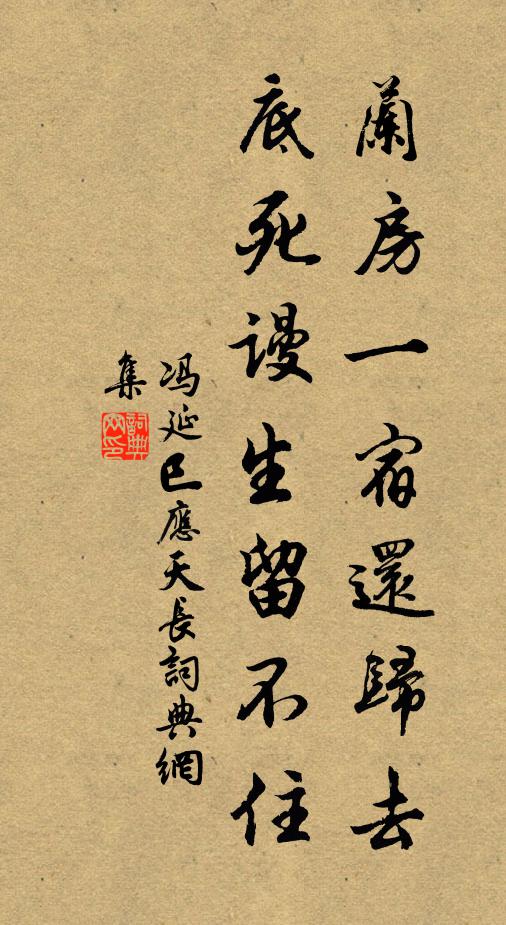 蘭房一宿還歸去
底死謾生留不住
冯延巳應天長詞典網
集
詞典
網印